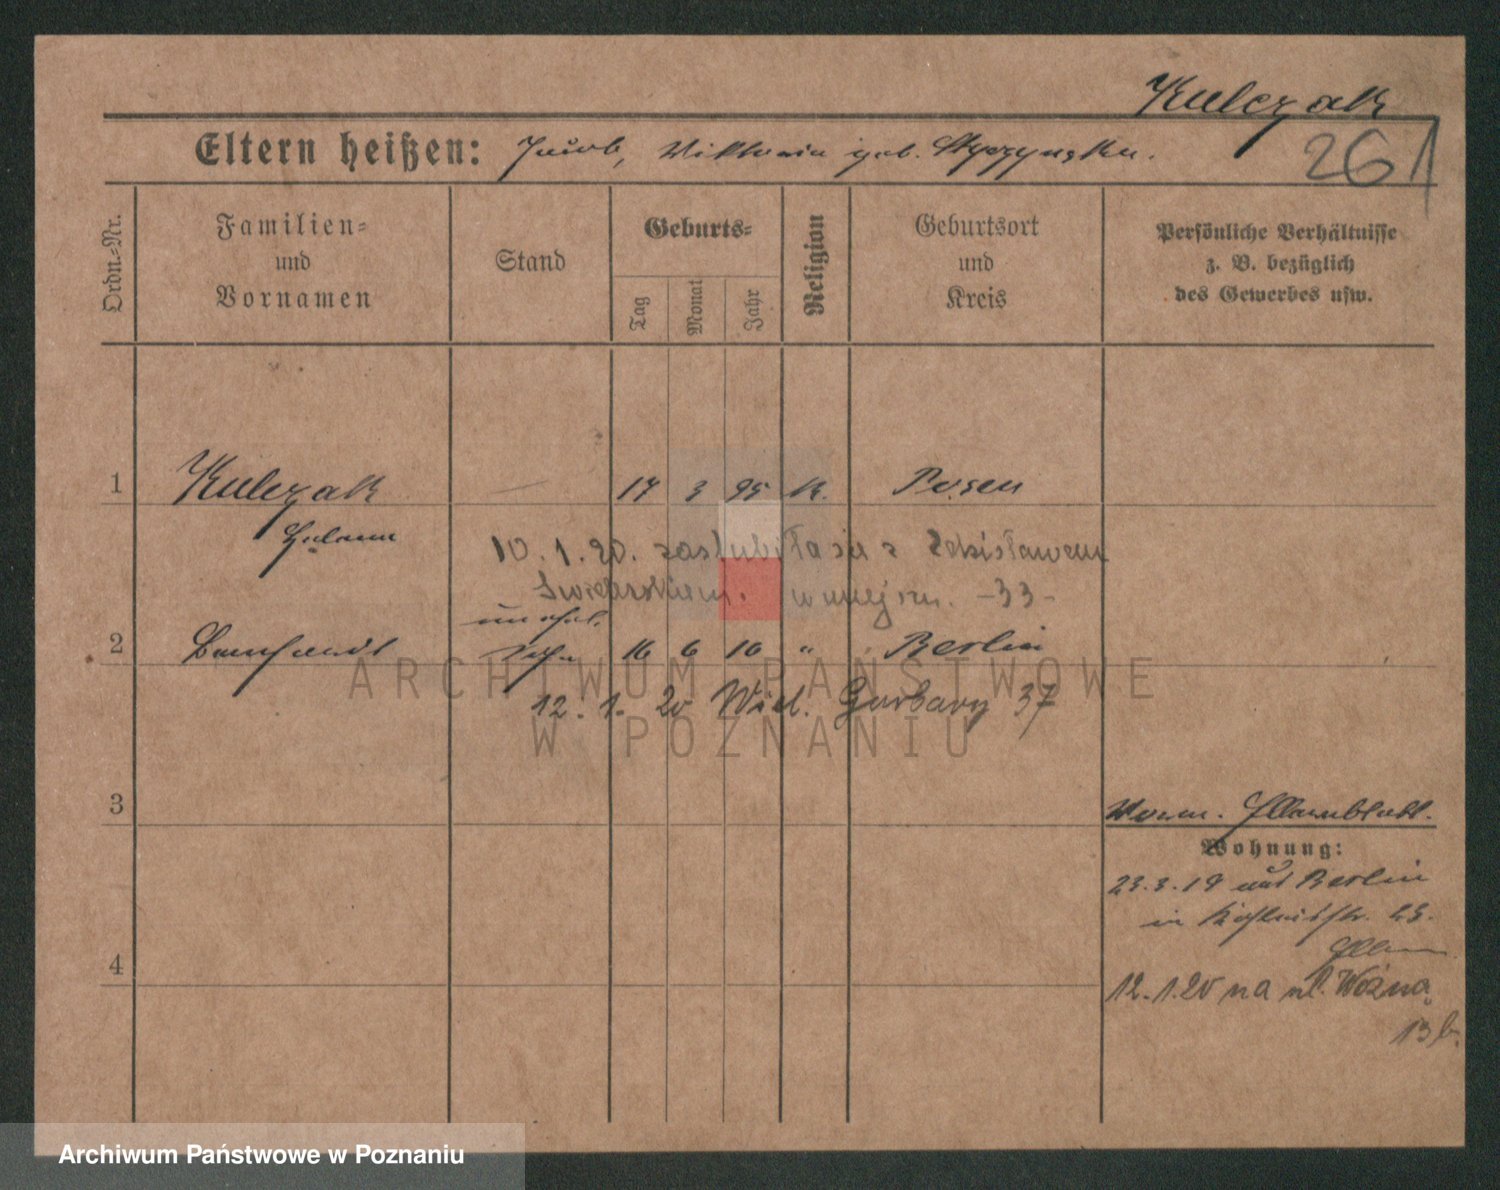 Kulczak
261
Eltern heißen: Jacob, Viktoria geb.
Ordn.=Nr.
Familien=
und
Vornamen
Stand
Geburts=
Tag
Monat
Jahr
Religion
Geburtsort
und
Kreis
Persönliche Verhältnisse
z. B. bezüglich
des Gewerbes usw.
1 Kulczak — 17 3 95 K. Posen
Helene
10.1.20. zaślubiła się z Zdzisławem
Świderskim. w miejscu. -33-
unehel.
2 Sohn 16 6 16 " Berlin
12. 1. 20 Wiel. Garbary 37
3
Wohnung:
23.3.19 aus Berlin
in 23.
4
12.1.20 na ul. Woźna
13 b.
ARCHIWUM PAŃSTWOWE
W POZNANIU
Archiwum Państwowe w Poznaniu